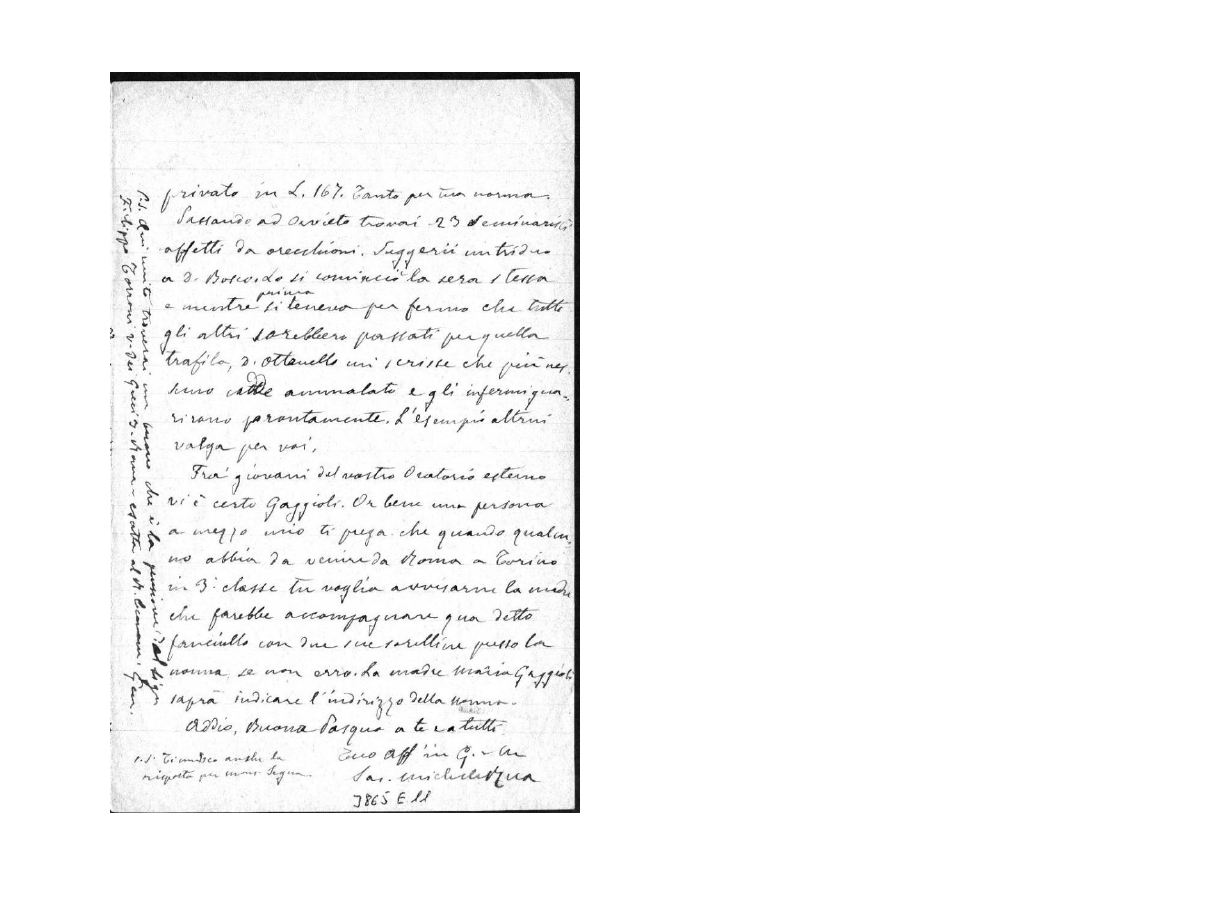 privato in L. 167. Tanto per tua norma.
Passando ad Orvieto trovai 23 seminaristi
affetti da orecchioni. Suggerii un triduo
a D. Bosco. Lo si cominciò la sera stessa
e mentre prima si teneva per fermo che tutti
gli altri sarebbero passati per quella
trafila, D. Ottonello mi scrisse che più nes-
suno cadde ammalato e gli infermi gua-
rirono prontamente. L'esempio altrui
valga per voi.
Fra' giovani del vostro Oratorio esterno
vi è certo Gaggioli. Or bene una persona
a mezzo mio ti prega che quando qualcu-
no abbia da venire da Roma a Torino
in 3ª classe tu voglia avvisarne la madre
che farebbe accompagnare qua detto
fanciullo con due sue sorelline presso la
nonna, se non erro. La madre Maria Gaggioli
saprà indicare l'indirizzo della nonna.
Addio, Buona Pasqua a te e a tutti.
Tuo aff in G. e M
Sac. Michele Rua
P.S. Ti unisco anche la
risposta per mons. Segna.
3865 E 11
P.S. Qui unito troverai un buono che è la pensione del sign
Filippo Torroni v. dei Greci 3. Roma - esatta al N. Econom. Gen.